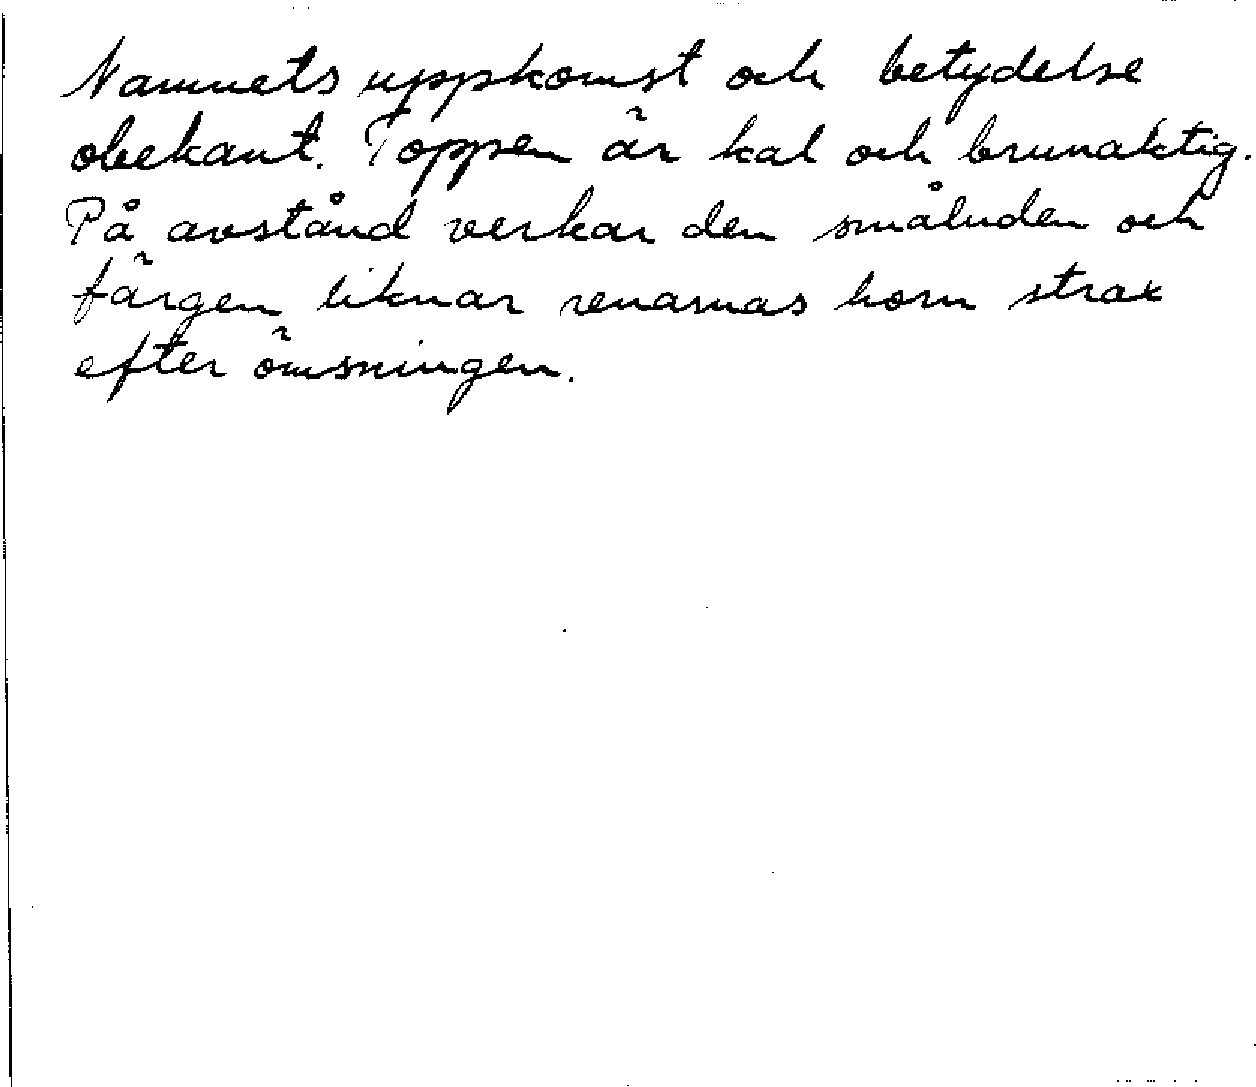 Namnets uppkomst och betydelse
obekant. Toppen är kal och brunaktig.
På avstånd verkar den småluden och
färgen liknar renarnas horn strax
efter ömsningen.